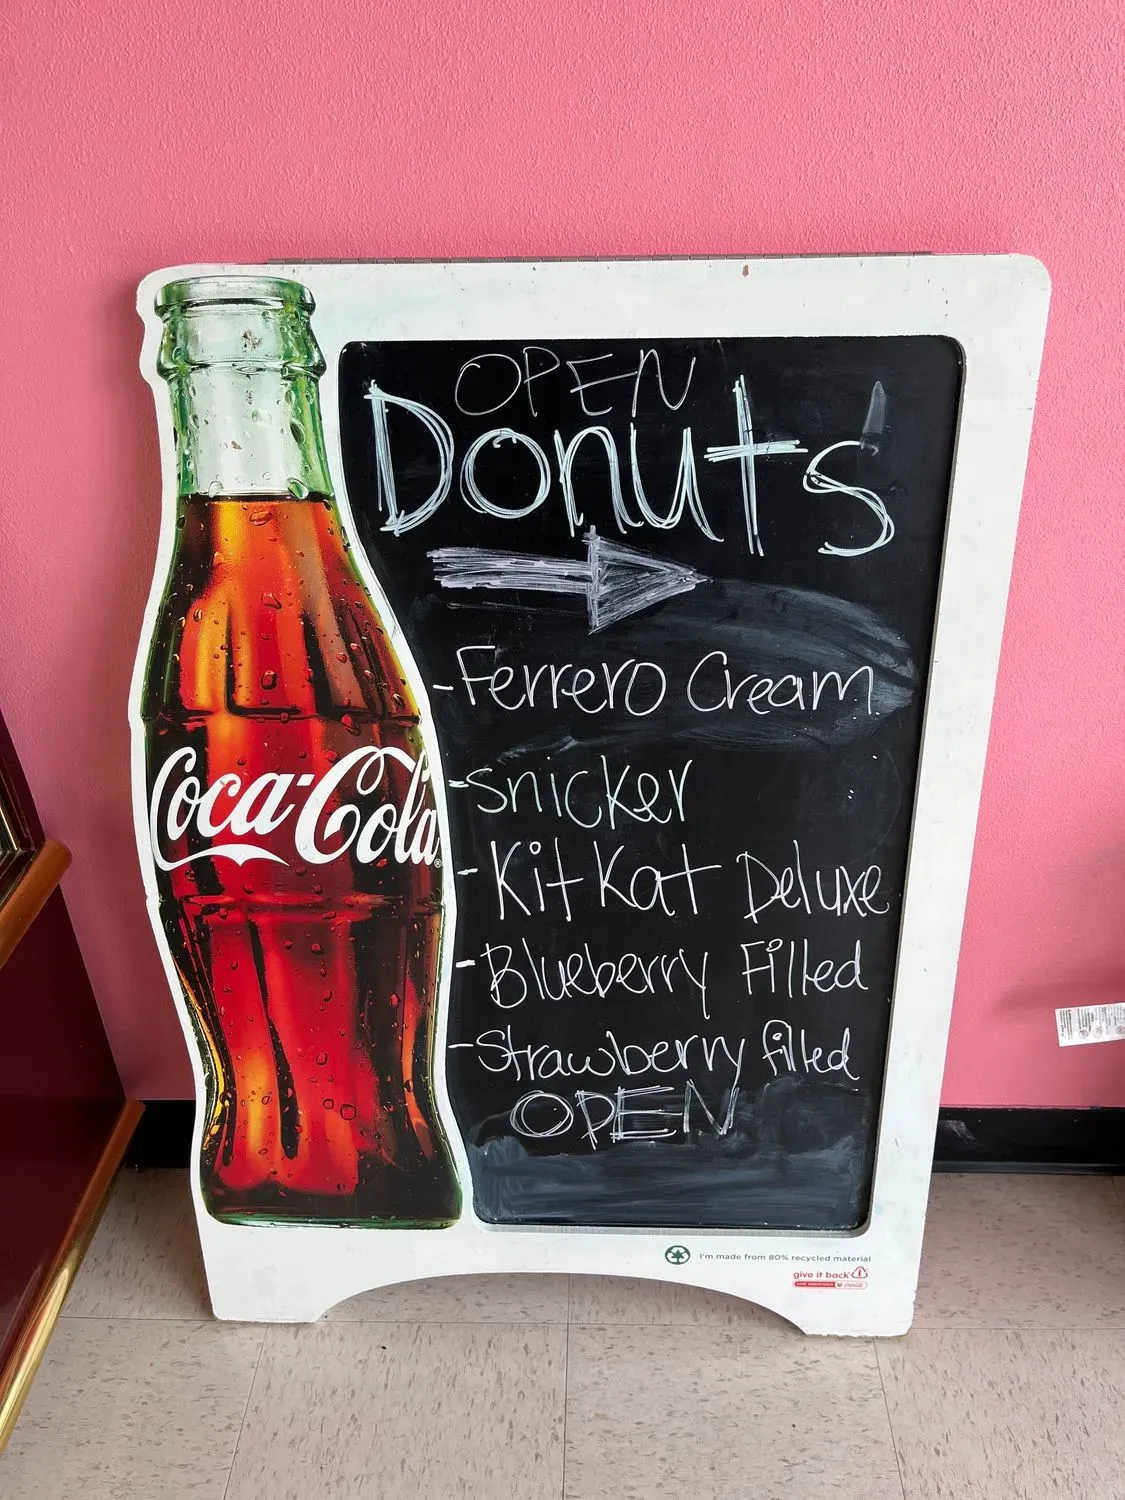 OPEN
Donuts
- Ferrero Cream
- snicker
- Kit Kat Deluxe
- Blueberry Filled
- Strawberry filled
OPEN
Coca-Cola
I'm made from 80% recycled material
give it back